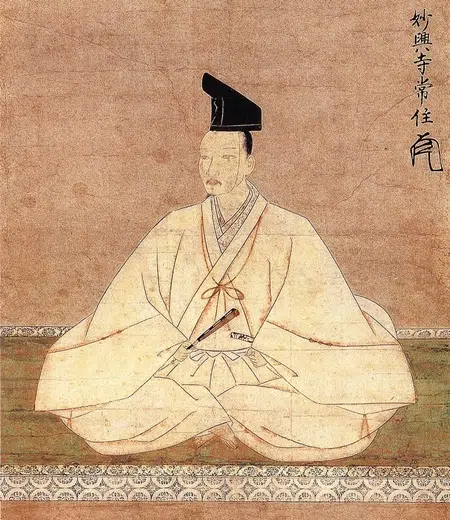 妙興寺常住